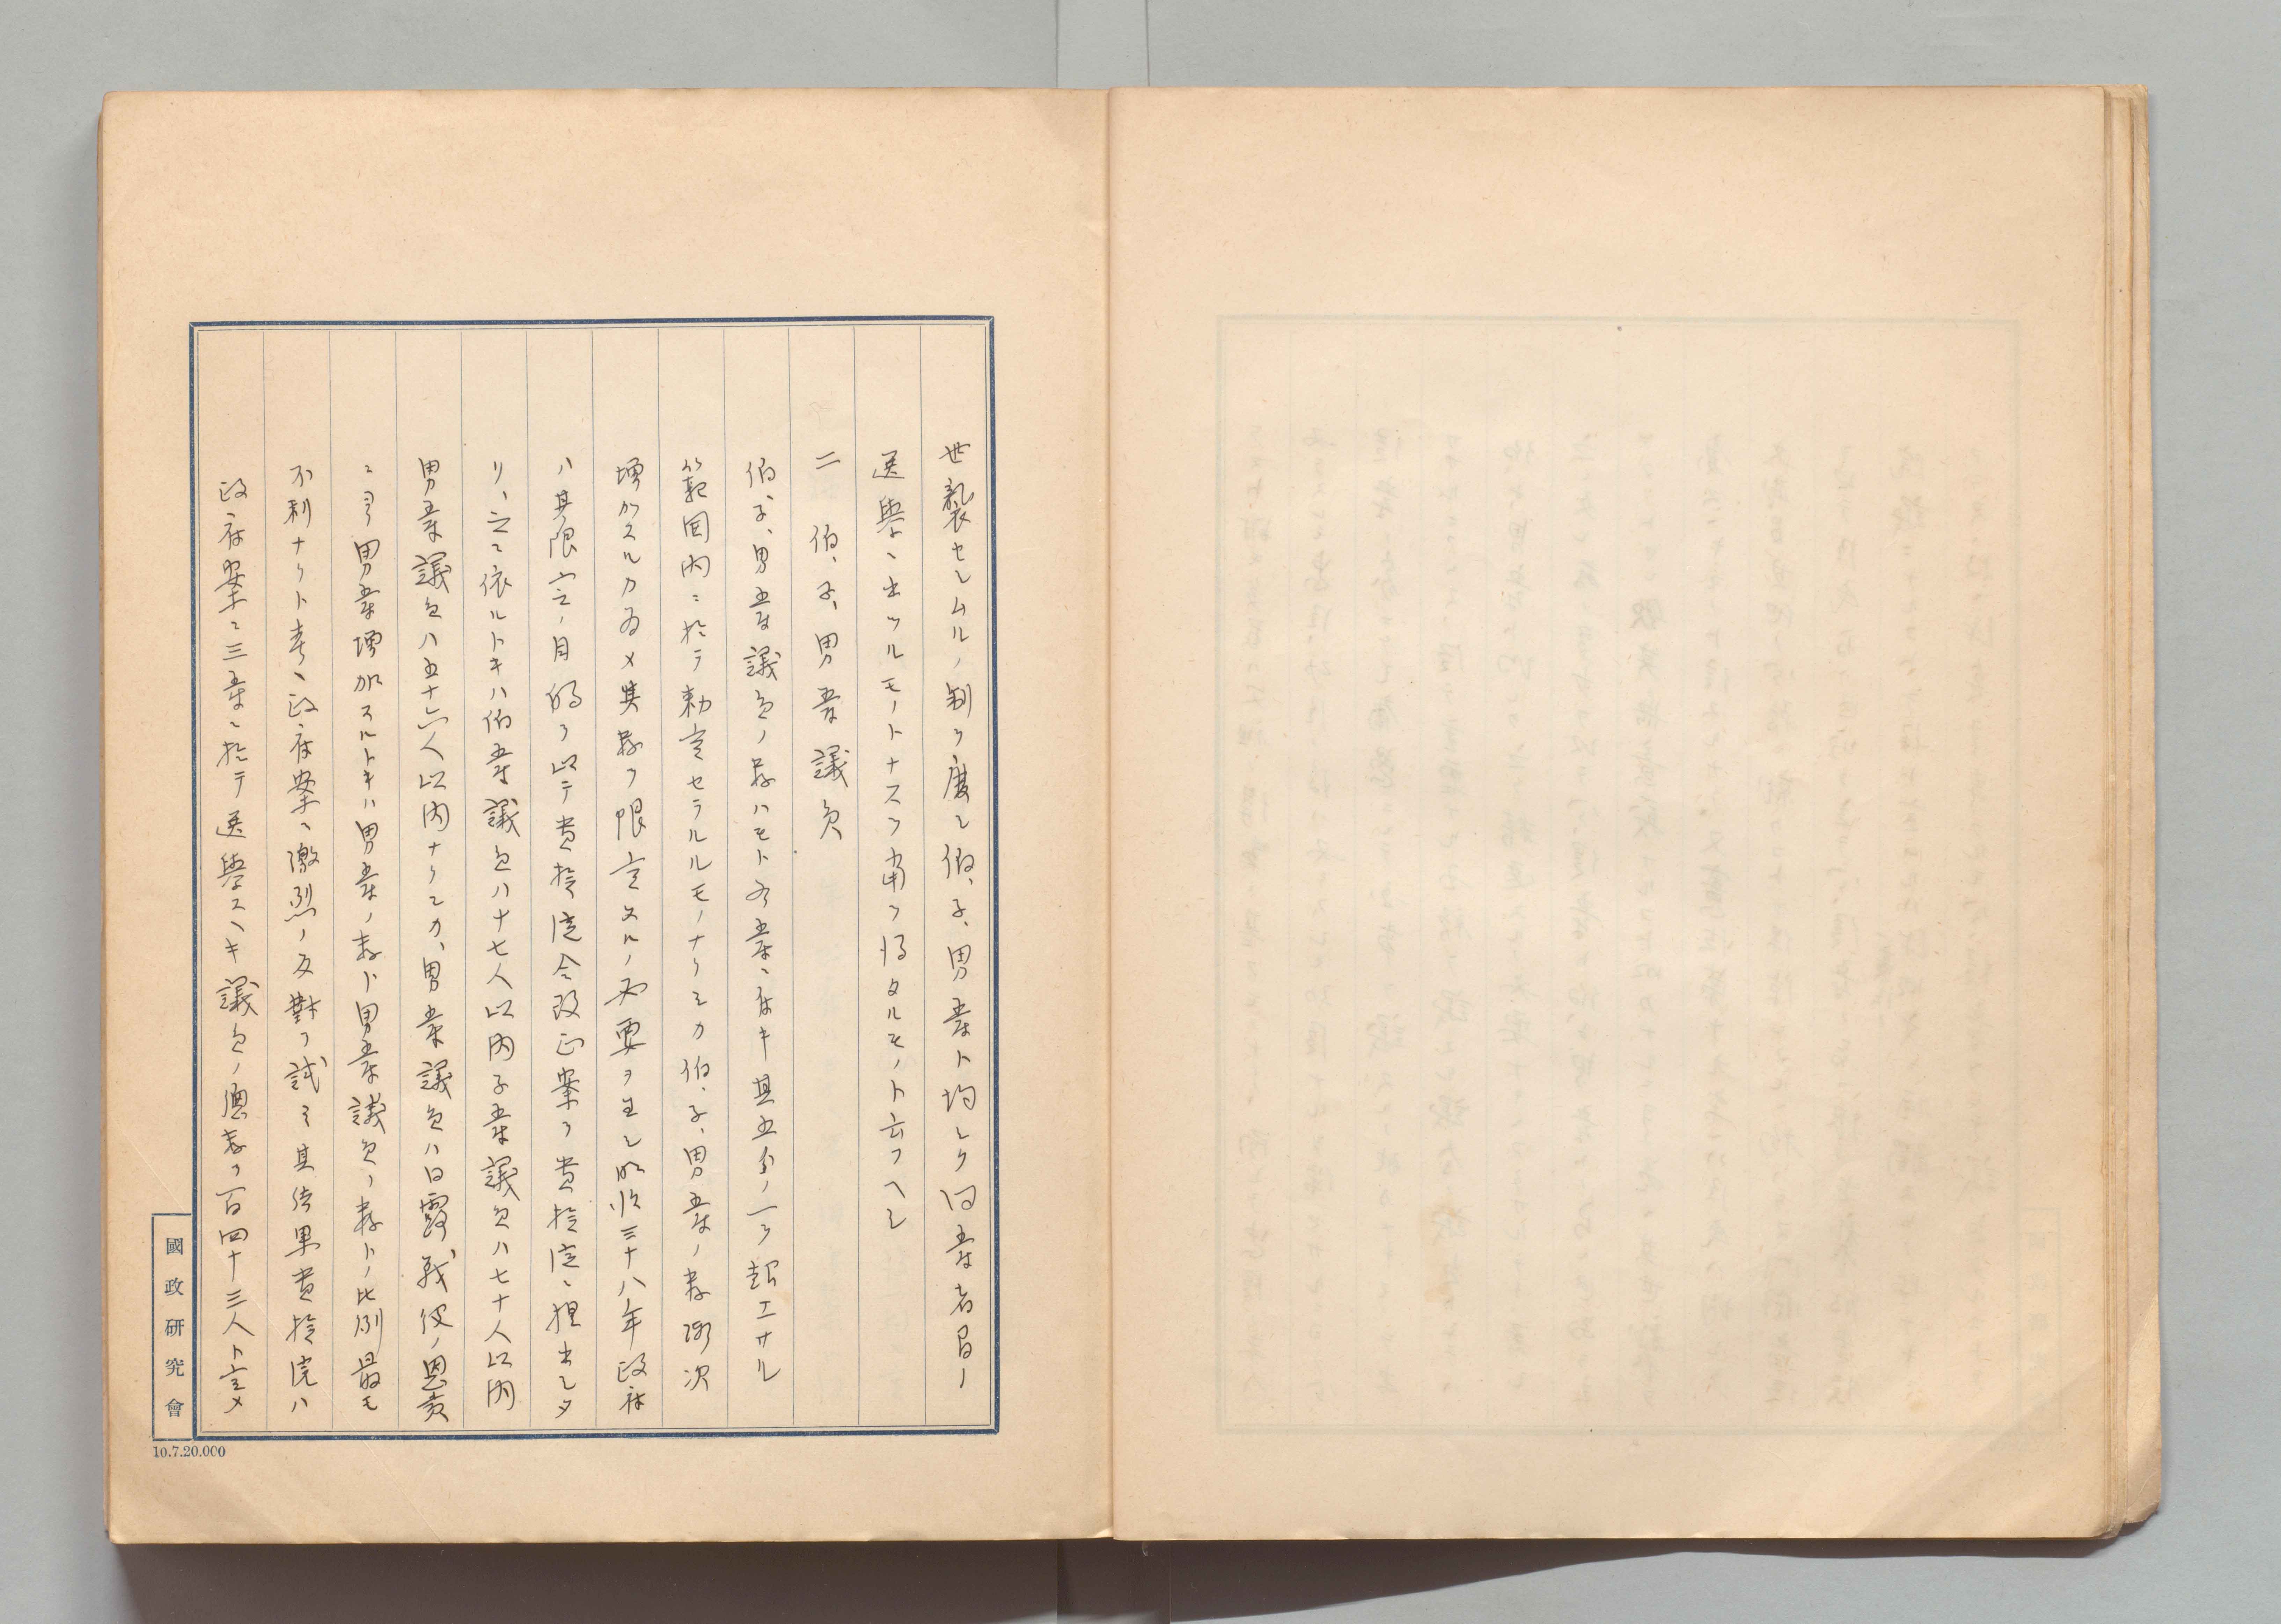 世襲セシムルノ制ヲ廢シ伯、子、男爵ト均シク同爵者間ノ
選擧ニ出ツルモノトナスヲ當ヲ得タルモノト云フヘシ
二 伯、子、男爵議員
伯、子、男爵議員ノ数ハモト各爵ニ付キ其五分ノ一ヲ超エサル
範囲内ニ於テ勅定セラルルモノナリシカ伯、子、男爵ノ数漸次
増加スルカ為メ其数ヲ限定スルノ必要ヲ生シ明治三十八年政府
ハ其限定ノ目的ヲ以テ貴族院令改正案ヲ貴族院ニ提出シタ
リ、之ニ依ルトキハ伯爵議員ハ十七人以内子爵議員ハ七十人以内
男爵議員ハ五十六人以内ナリシカ、男爵議員ハ日露戦役ノ恩賞
ニヨリ男爵増加スルトキハ男爵ノ数ト男爵議員ノ数トノ比例最モ
不利ナリト考ヘ政府案ニ激烈ノ反對ヲ試ミ其結果貴族院ハ
政府案ニ三爵ニ於テ選擧スヘキ議員ノ總数ヲ一百四十三人ト定メ
國政研究會
10.7.20.000